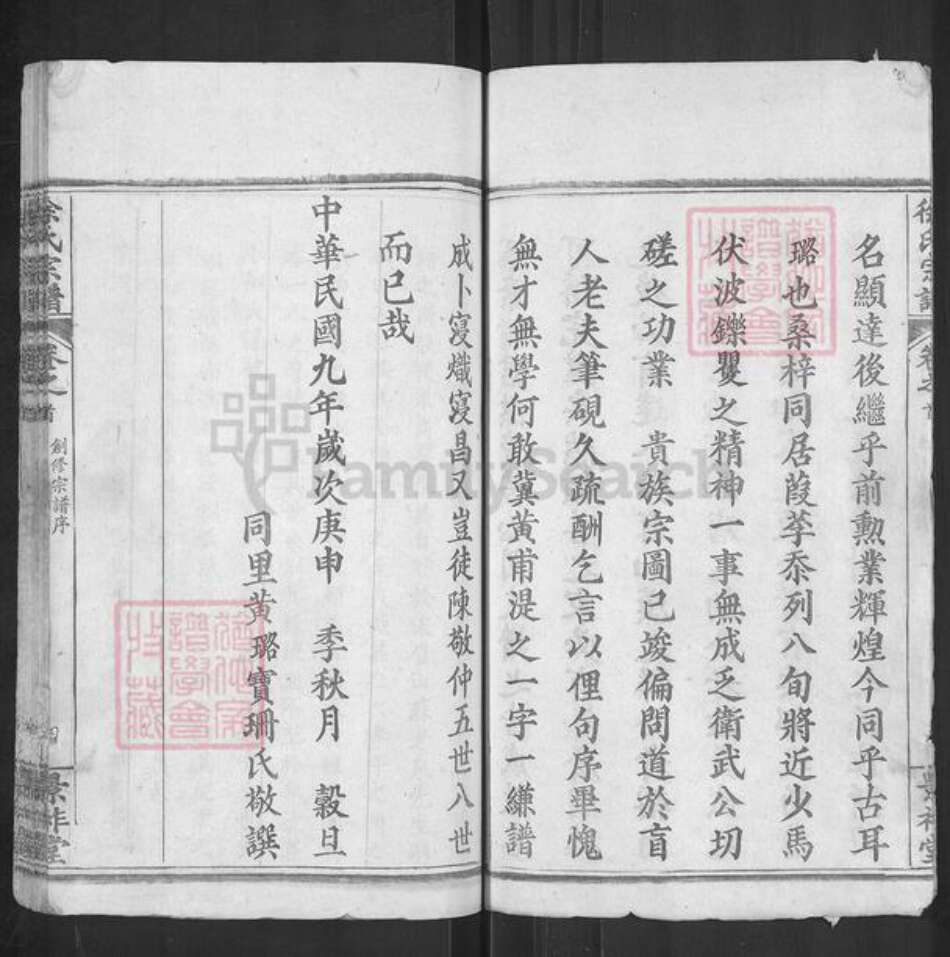 名顯達後繼乎前勳業輝煌今同乎古耳
璐也桑梓同居葭莩忝列八旬將近少馬
伏波鑠矍之精神一事無成乏衛武公切
磋之功業　貴族宗圖已竣偏問道於盲
人老夫筆硯久疏酬乞言以俚句序畢愧
無才無學何敢冀黃甫湜之一字一縑譜
成卜寖熾寖昌又豈徒陳敬仲五世八世
而已哉
中華民國九年歲次庚申　季秋月　穀旦
同里黃璐寶珊氏敬譔
徐氏宗譜
卷之首
創修宗譜序
四
FamilySearch